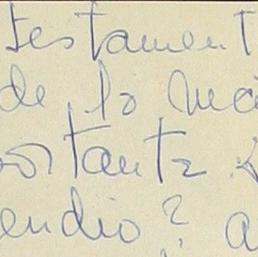 testament
de lo má
ortante.
endio? a